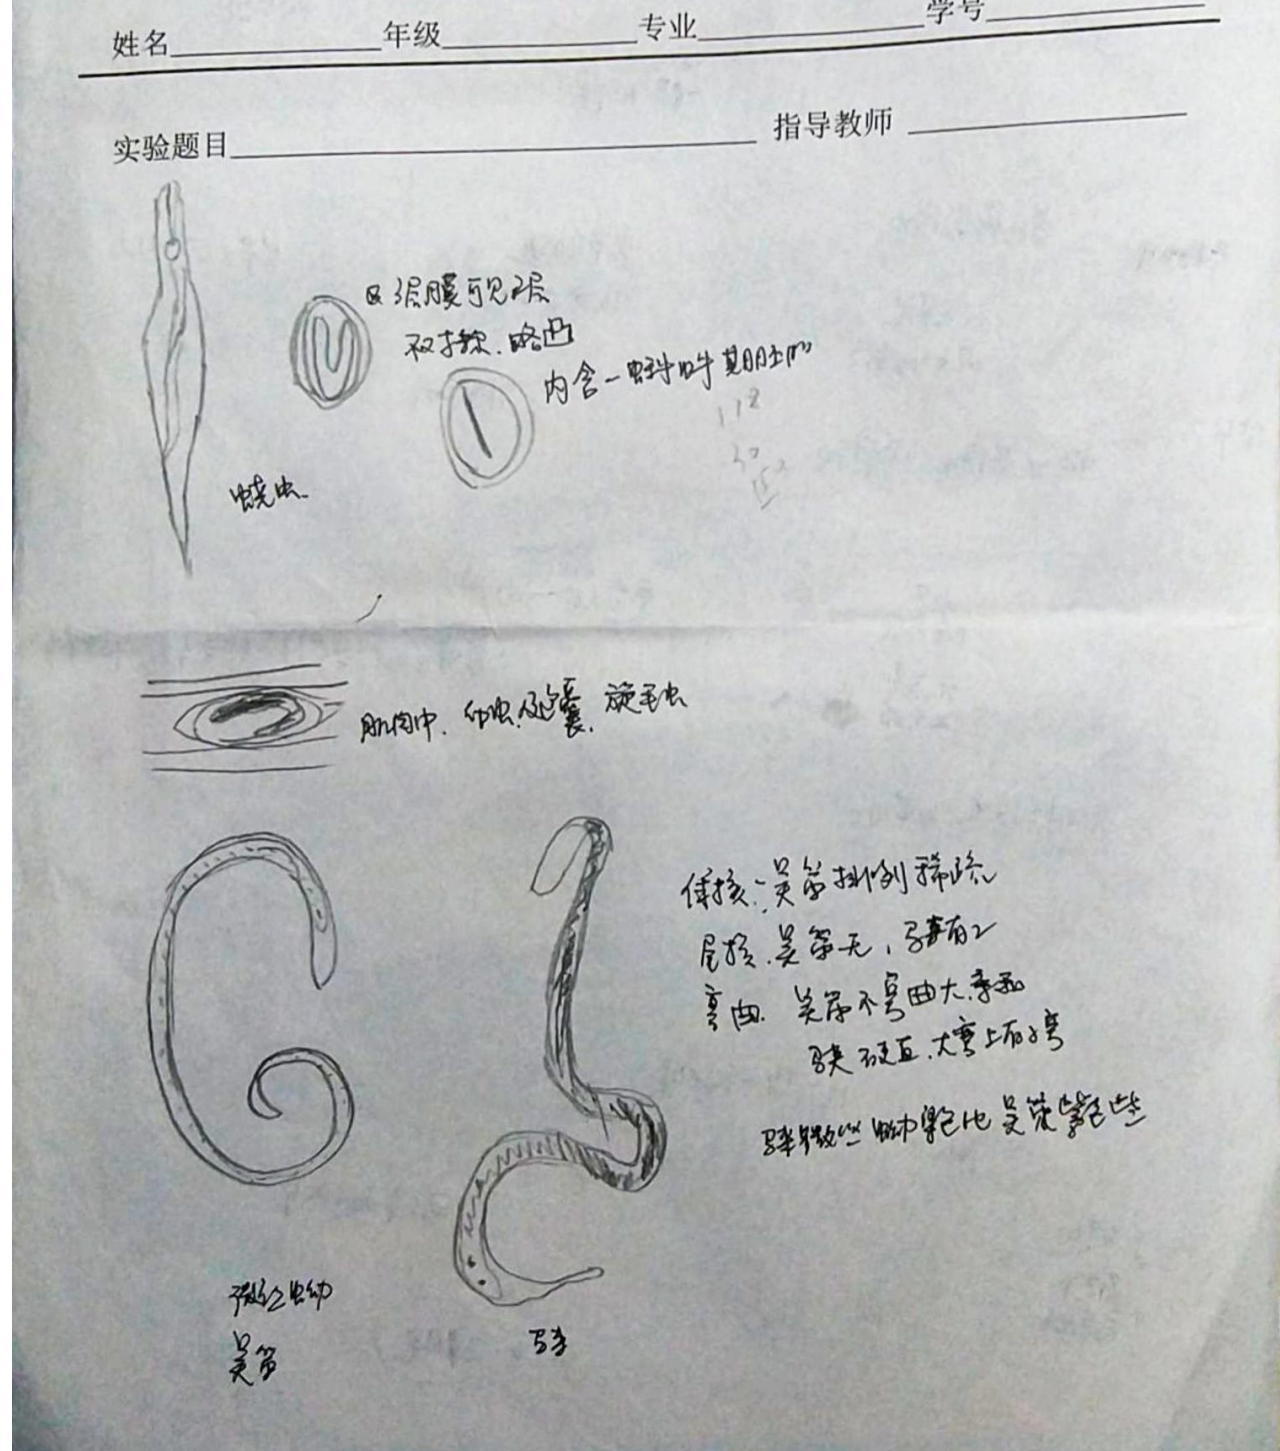 姓名 年级 专业 学号
实验题目 指导教师
3层膜可见2层
不对称.略凸
内含一蝌蚪期胚
118
30
蛲虫.
肌肉中.幼虫 囊.旋毛虫
体核:吴策排列稀疏
尾核.吴策无,马来有2
弯曲.吴策不弯曲大.柔和
马来硬直.大弯上有小弯
马来微丝蚴 比吴策紫色些
微丝蚴
吴策
马来